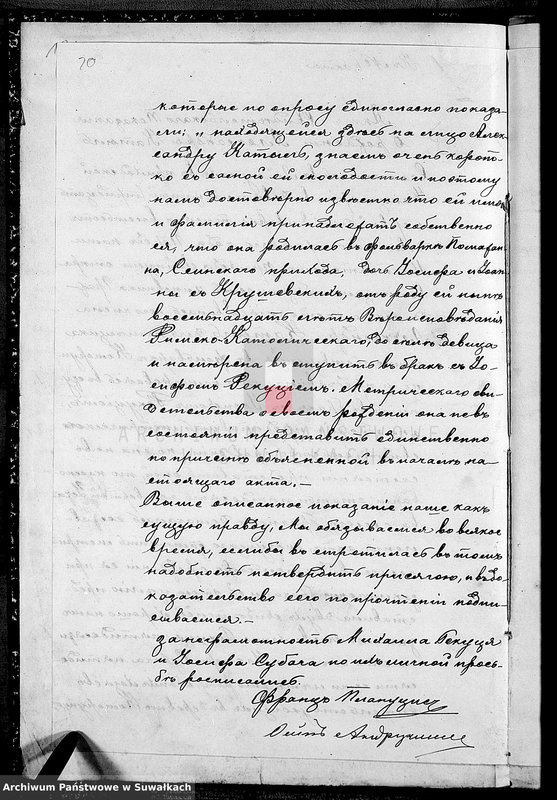 70
которые по опросу единогласно показа-
ли: „ находящейся здесь на лицо Алек-
сандру Катыль, знаем очень корот-
ко съ самой ей молодости и поэтому
намъ достоверно известно что ей имя
и фамилія принадлежатъ собственно
ея, что она родилась въ фольварке
на, Сейнскаго прихода, дочь Іосифа и Іоан-
ны съ Крушевскихъ, отъ роду ей ныне
восемьнадцать летъ Вероисповеданія
Римско-Католическаго до селе девица
и намерена вступить въ бракъ съ Іо-
сифомъ Рекуцемъ. Метрическаго сви-
детельства о своемъ рожденіи она не въ
состояніи представить единственно
по причине объясненной въ начале на-
стоящаго акта. —
Выше описанное показаніе наше какъ
сущую правду, мы обязываемся во всякое
время, еслибы встретилась въ томъ
надобность потвердить присягою, и въ до-
казательство сего по прочтеніи подпи-
сываемся. —
За неграмотность Михаила Рекуця
и Іосифа Субача по ихъ личной прось-
бе росписались.
Францъ
Archiwum Państwowe w Suwałkach